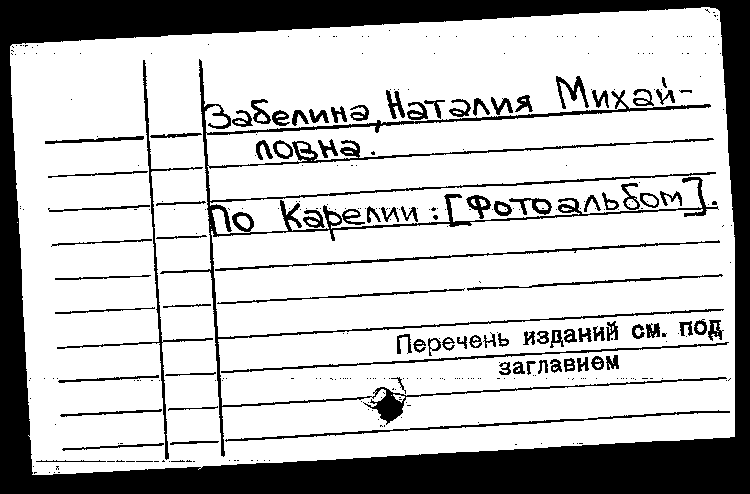 Забелина, Наталия Михай-
ловна.
По Карелии: [Фотоальбом].
Перечень изданий см. под
заглавием